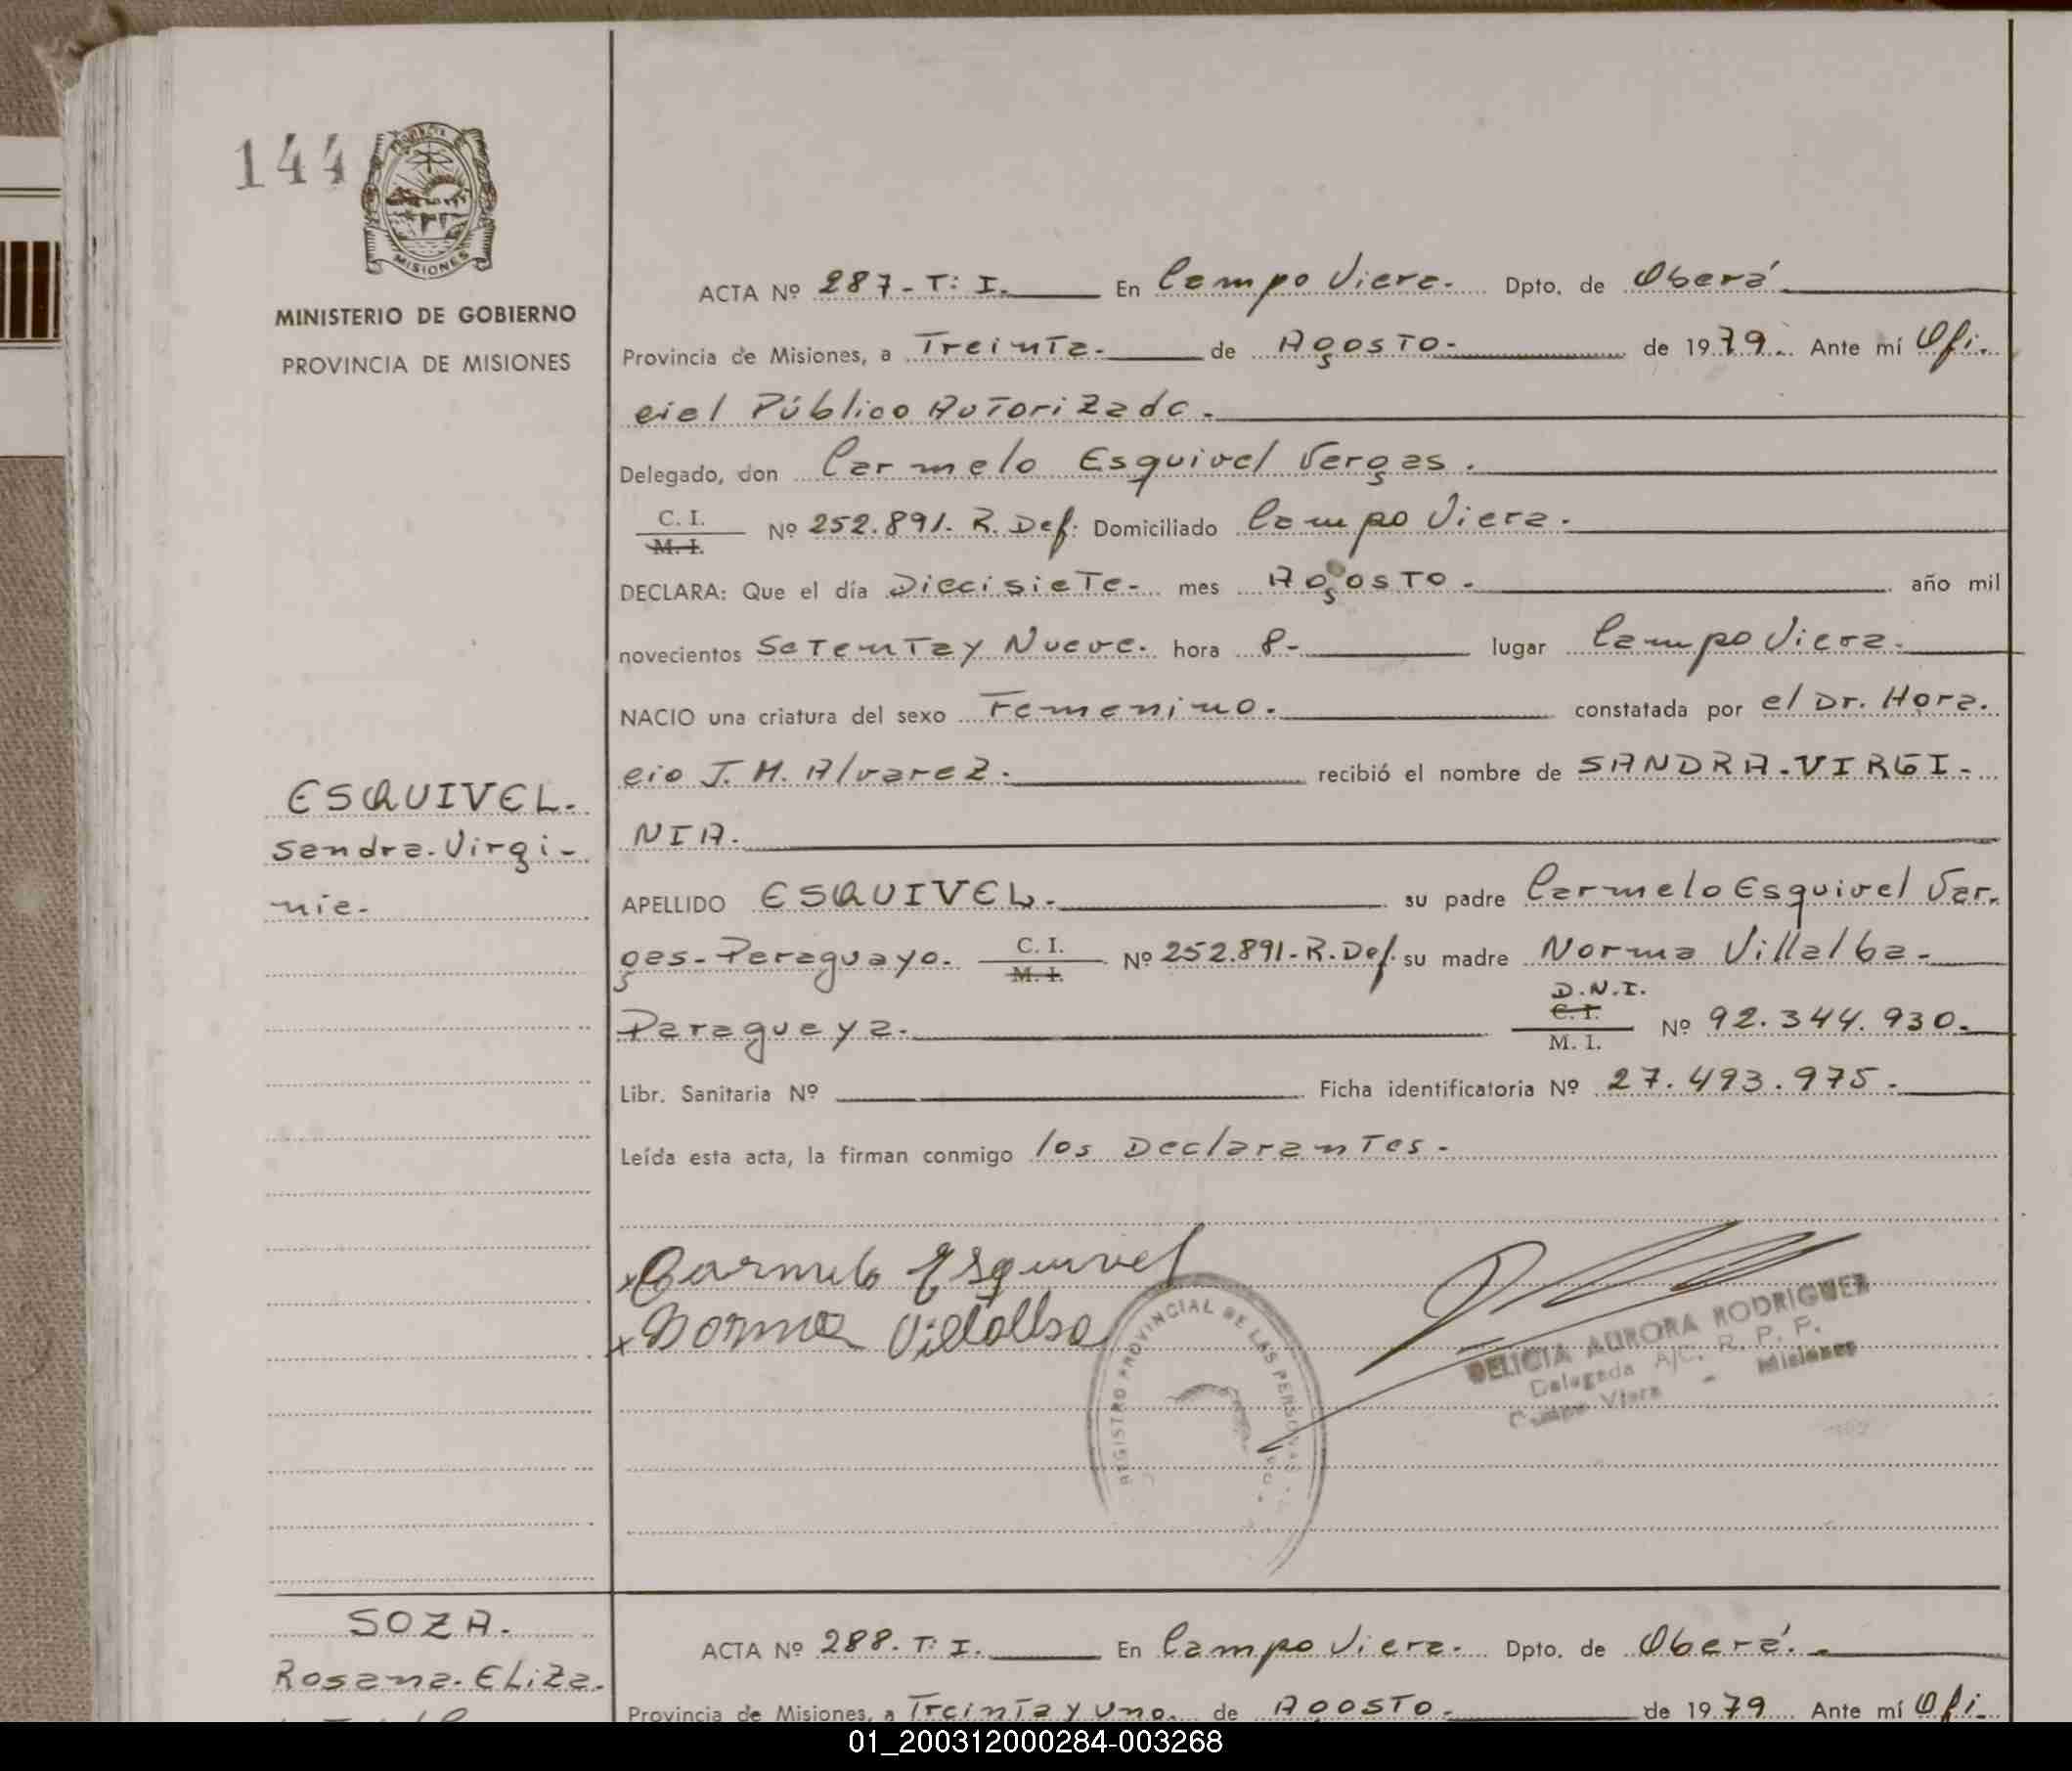 144
MISIONES
MINISTERIO DE GOBIERNO
PROVINCIA DE MISIONES
ACTA Nº 287-T: I. En Campo Viera. Dpto. de Oberá
Provincia de Misiones, a Treinta. de Agosto. de 1979. Ante mí Ofi-
cial Público Autorizado.
Delegado, don Carmelo Esquivel Vergas.
C. I.
M. I. Nº 252.891. R. Def. Domiciliado Campo Viera.
DECLARA: Que el día Diecisiete- mes Agosto. año mil
novecientos Setenta y Nueve. hora 8- lugar Campo Viera.
NACIO una criatura del sexo Femenino. constatada por el Dr. Hora.
cio J. M. Alvarez. recibió el nombre de SANDRA-VIRGI-
NIA.
ESQUIVEL.
Sandra-Virgi-
nia-
APELLIDO ESQUIVEL. su padre Carmelo Esquivel Var.
gas-Paraguayo. C. I.
M. I. Nº 252.891-R.Def. su madre Norma Villalba-
Paragueya. D.N.I.
C. I.
M. I. Nº 92.344.930.
Libr. Sanitaria Nº Ficha identificatoria Nº 27.493.975.
Leída esta acta, la firman conmigo los Declarantes.
x Carmelo Esquivel
x Norma Villalba
REGISTRO PROVINCIAL DE LAS PERSONAS
DELICIA AURORA RODRIGUEZ
Delegada A/C. R. P. P.
Campo Viera - Misiones
SOZA.
Rosana-Eliza.
ACTA Nº 288. T: I. En Campo Viera. Dpto. de Oberá.
Provincia de Misiones, a Treinta y Uno. de Agosto. de 1979 Ante mí Ofi-
01_200312000284-003268